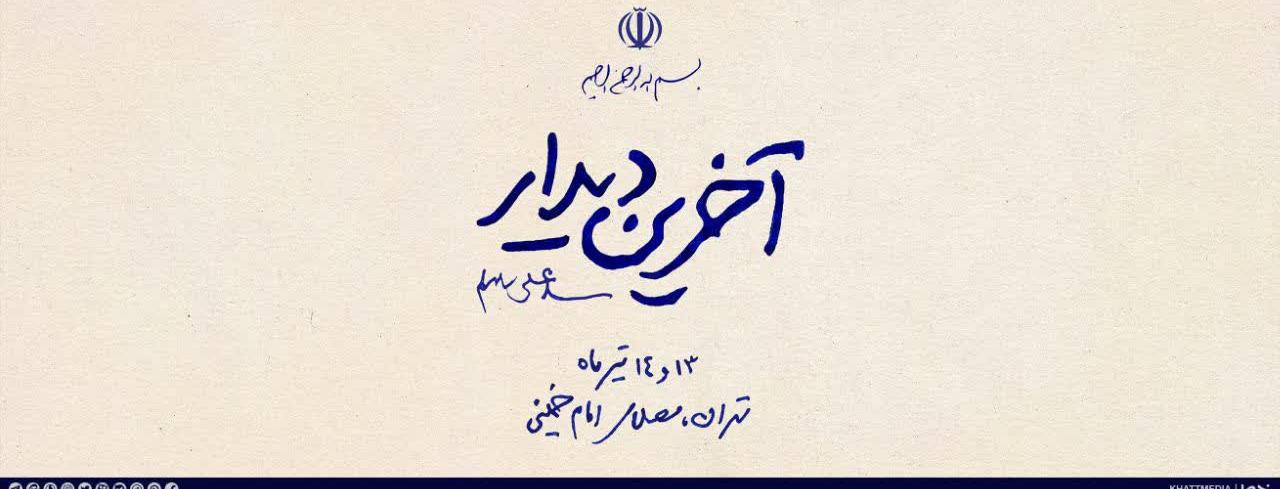 بسم الله الرحمن الرحیم
آخرین دیدار
سید علی
۱۳ و ۱٤ تیر ماه
تهران، مصلای امام خمینی
KHATTMEDIA